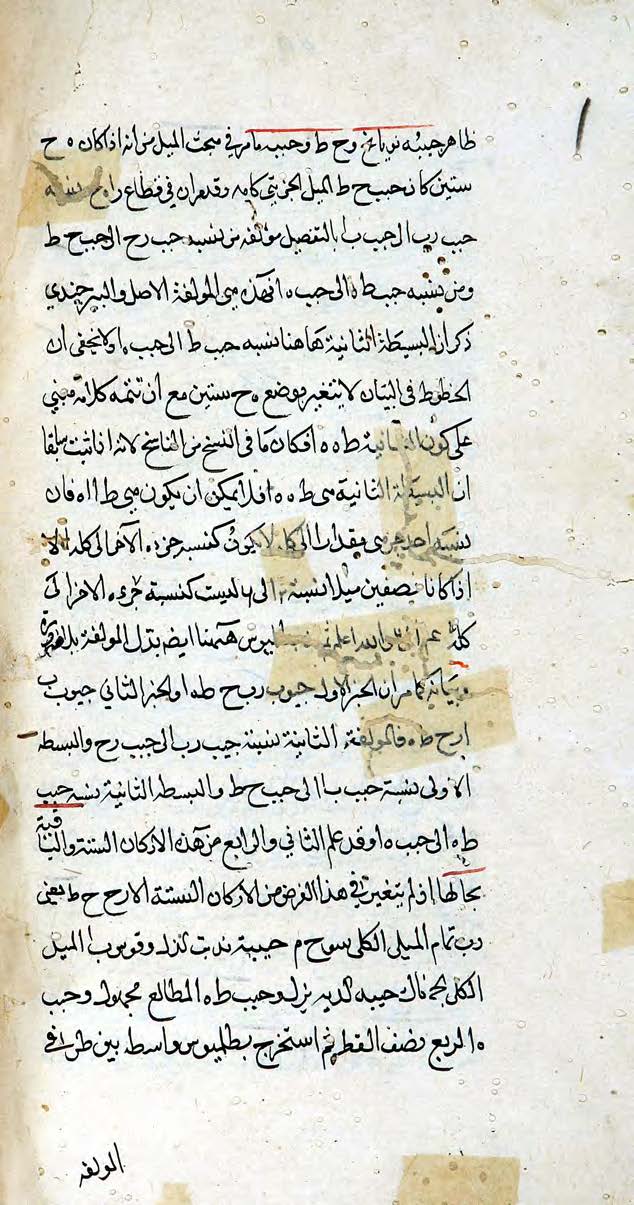 ظاهر جيبه وح ط وجيبه مامر في مبحث الميل من انه اذا كان ه ح
ستين كان جيب ح ط الميل الجزئي كامه وقدمران في قطاع را نسبة
جيب رب الى جيب ب ا بالتفصيل مولفة من نسبة جيب رح الى جيب ح ط
ومن نسبة جيب ط ه الى جيب ه ا فهذه هي المولفة الاصل والبرجندي
ذكر ان البسيطة الثانية هاهنا نسبة جيب ط الى جيب ه ا ولا يخفى ان
الخطوط في البيان لا يتغير بوضع ه ح ستين مع ان تتمه كلامه مبني
على كون الثانية ط ه ه ا فكان ما في النسخ من الناسخ لانه اذا ثبت سابقا
ان البسيطة الثانية هي ط ه ه ا فلا يمكن ان يكون هي ط ا ا ه فان
نسبة احد جزئي مقدار الى كله لا يكون كنسبة جزءه الآخر الى كله الا
اذا كانا نصفين مثلا نسبة ٢ الى ٦ ليست كنسبة جزءه الاخر الى
كله والله اعلم هاهنا ايضا بدل المولفة
وبيانه كما مر ان الجزء الاول جيوب رب ح ط ه ا والجزء الثاني جيوب ب
ا رح ط ه فالمولفة الثانية نسبة جيب رب الى جيب رح والبسيطه
الاولى نسبة جيب ب ا الى جيب ح ط والبسطه الثانية نسبة جيب
ط ه الى جيب ه ا وقد علم الثاني والرابع من هذه الاركان الستة والباقية
بحالها اذ لم يتغير في هذا الفرض من الاركان الستة الا رح ح ط يعني
رب تمام الميل الكلي سوح م جيبه ند ت لد وقوس ب ا الميل
الكلي جيبه وجيب ط ه المطالع مجهول وجيب
ه ا الربع نصف القطر ثم استخرج بطلميوس واسطه بين طرفي
المولفه